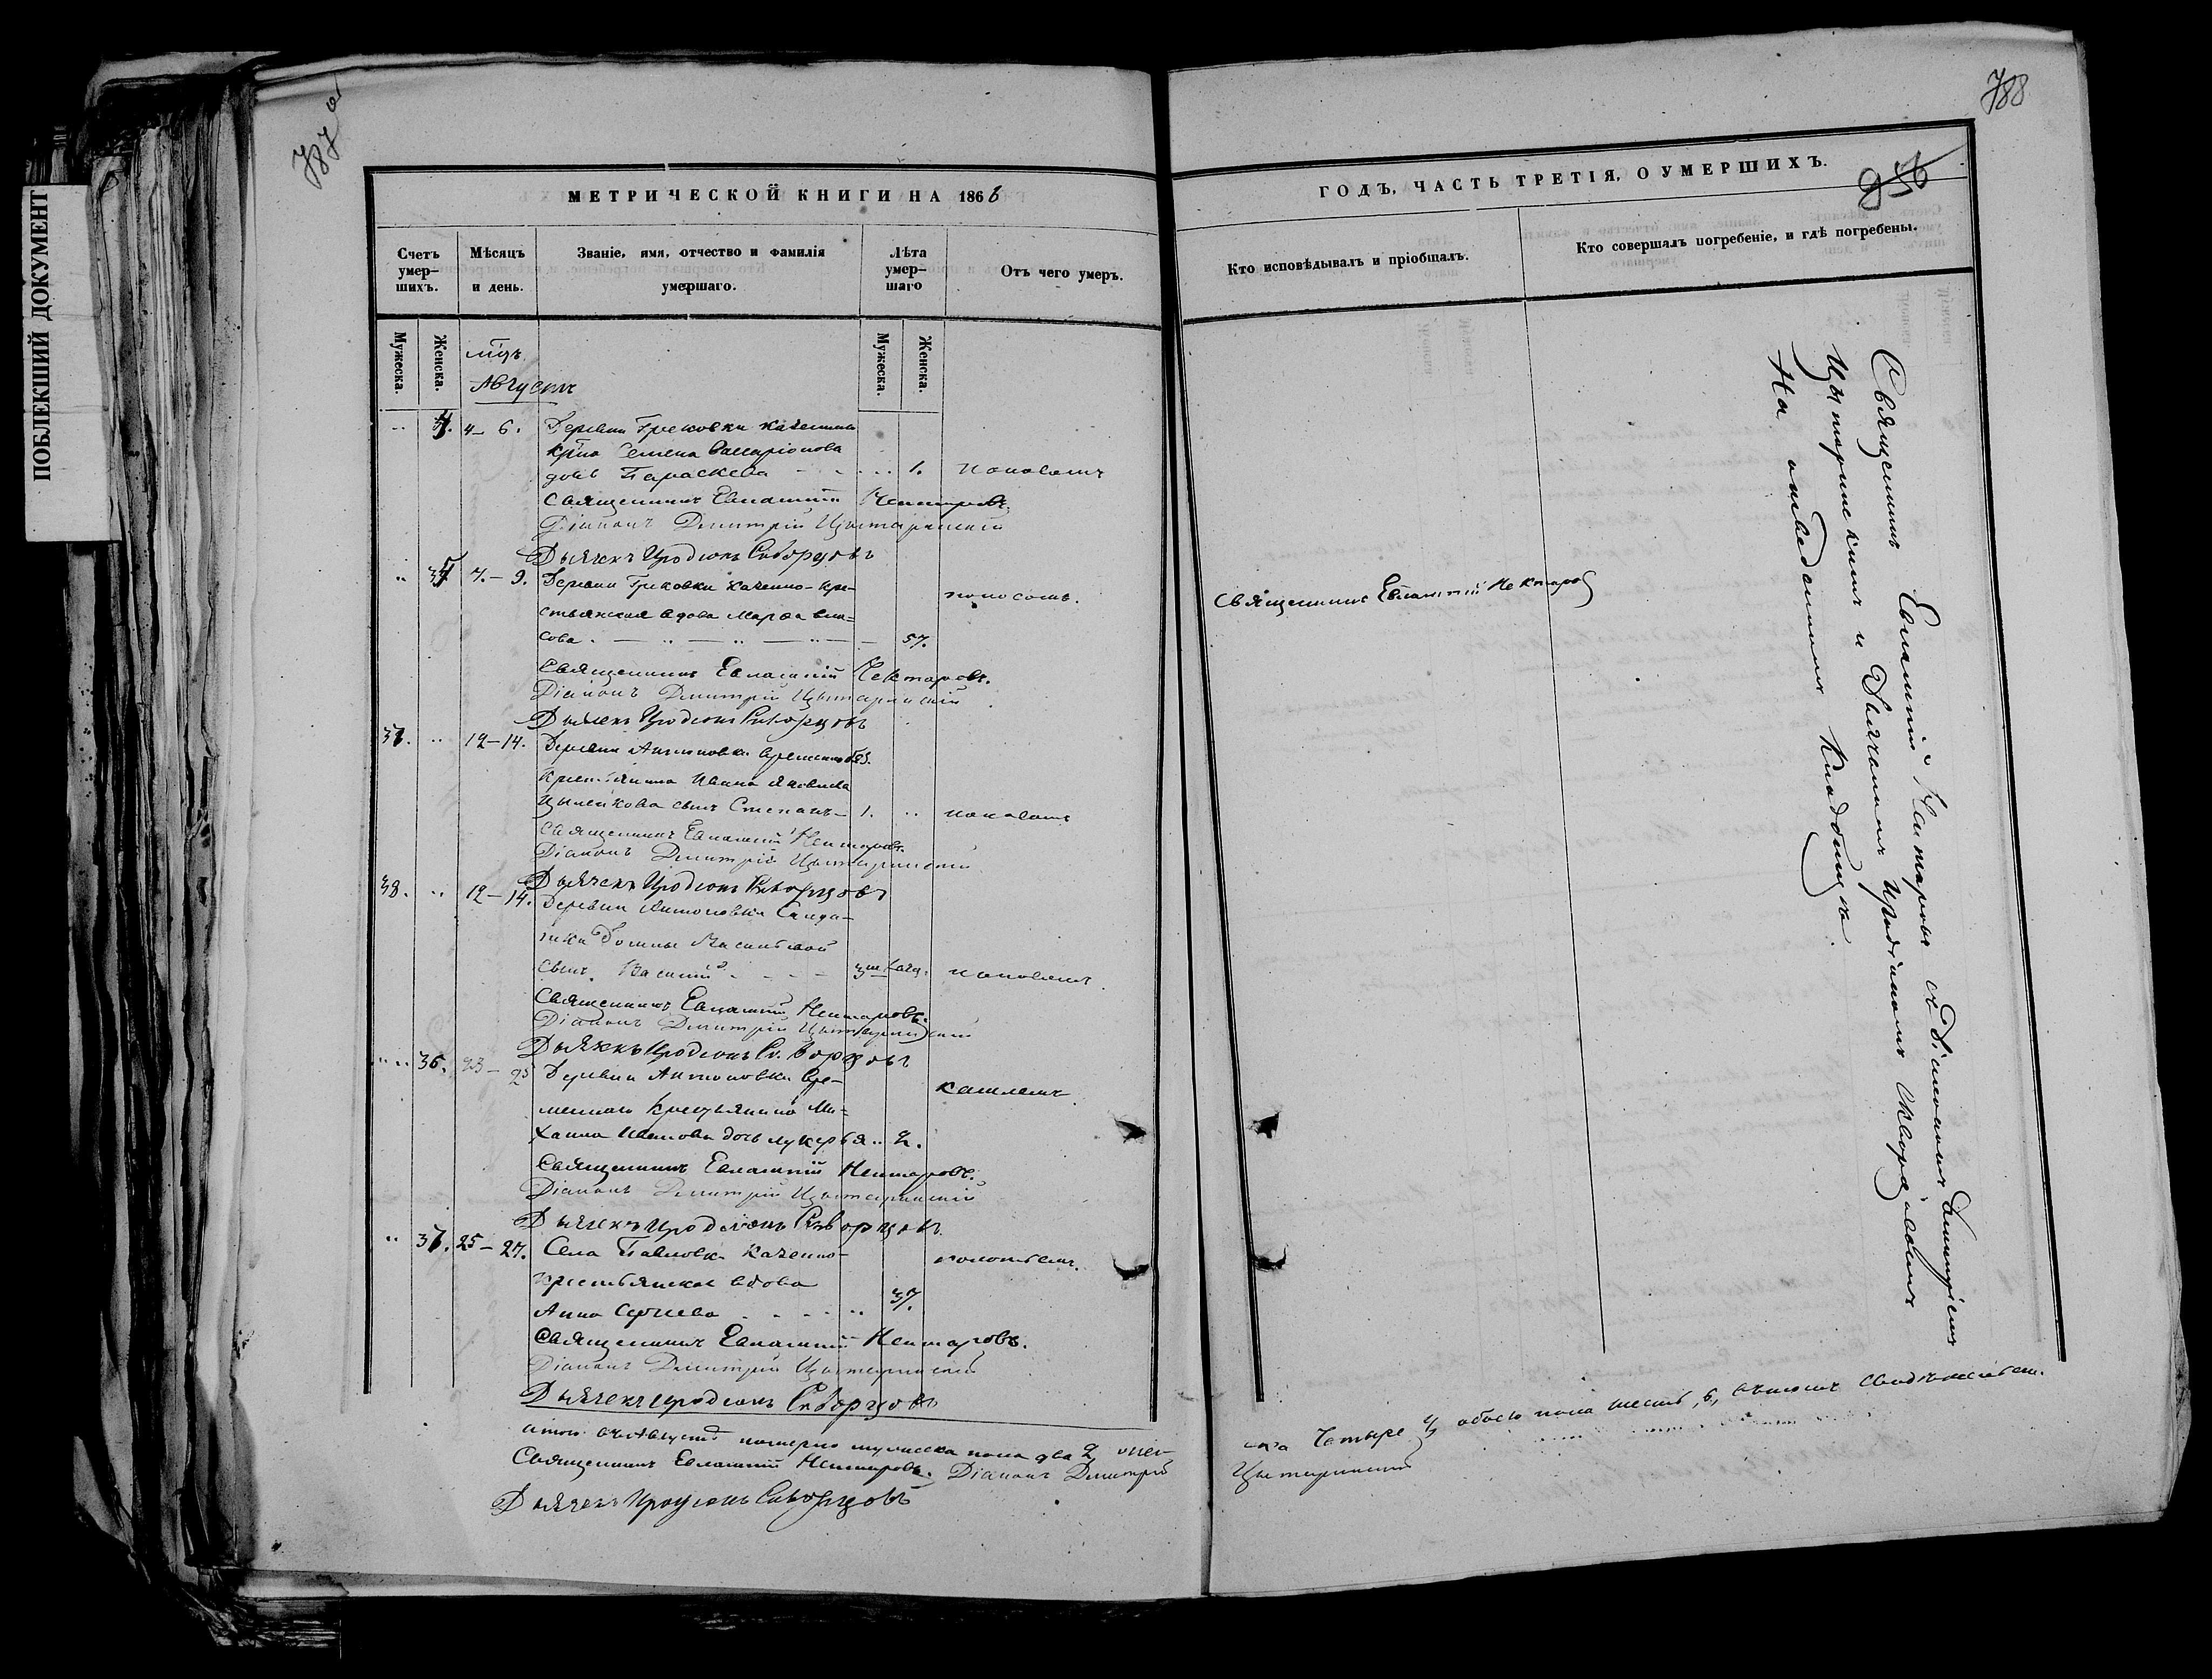 ПОБЛЕКШИЙ ДОКУМЕНТ
787 об
МЕТРИЧЕСКОЙ КНИГИ НА 1866
Счетъ умер-шихъ.
Мѣсяцъ и день.
Званіе, имя, отчество и фамилія умершаго.
Лѣта умер-шаго
Отъ чего умеръ.
Мужеска.
Женска.
Мужеска.
Женска.
мцъ
Августъ
4-6. Деревни Грековки казеннаго
крна Семена
дочь Параскева 1. поносомъ
Священникъ Евлампій Нектаровъ
Діаконъ Димитрій Цытаринскій
Дьячекъ Иродіонъ Скворцовъ
7.-9. Деревни Грековки казенно-кре-
стьянская вдова Марѳа Вла-
сова 57. поносомъ.
Священникъ Евлампій Нектаровъ.
Діаконъ Димитрій Цытаринскій
Дьячекъ Иродіонъ Скворцовъ
12-14. Деревни Антоновки временнообяз.
крестьянина Ивана Яковлева
сынъ Степанъ 1. поносомъ
Священникъ Евлампій Нектаровъ.
Діаконъ Димитрій Цытаринскій
Дьячекъ Иродіонъ Скворцовъ
38. 12-14. Деревни Антоновки Солда-
тки Домны Васильевой
сынъ Василій поносомъ.
Священникъ Евлампій Нектаровъ.
Діаконъ Димитрій Цытаринскій
Дьячекъ Иродіонъ Скворцовъ
36. 23-25 Деревни Антоновки Вре-
меннаго крестьянина Ми-
хаила Иванова дочь Лукерья 2. кашлемъ
Священникъ Евлампій Нектаровъ.
Діаконъ Димитрій Цытаринскій
Дьячекъ Иродіонъ Скворцовъ
37. 25-27. Села Павловки казенно-
крестьянская вдова
Анна Сергіева 37.
Священникъ Евлампій Нектаровъ.
Діаконъ Димитрій Цытаринскій
Дьячекъ Иродіонъ Скворцовъ
Итого въ Августѣ померло мужеска пола два 2, жен-
Священникъ Евлампій Нектаровъ. Діаконъ Димитрій
Дьячекъ Иродіонъ Скворцовъ
788
ГОДЪ, ЧАСТЬ ТРЕТІЯ, О УМЕРШИХЪ.
Кто исповѣдывалъ и пріобщалъ.
Кто совершалъ погребеніе, и гдѣ погребены.
Священникъ Евлампій Нектаровъ
Священникъ Евлампій Нектаровъ съ Діакономъ Димитріемъ
Цытаринскимъ и Дьячкомъ Иродіономъ Скворцовымъ
На отведенномъ кладбищѣ.
ска четыре 4, обоего пола шесть, 6, въ томъ свидѣтельствуемъ.
Цытаринскій